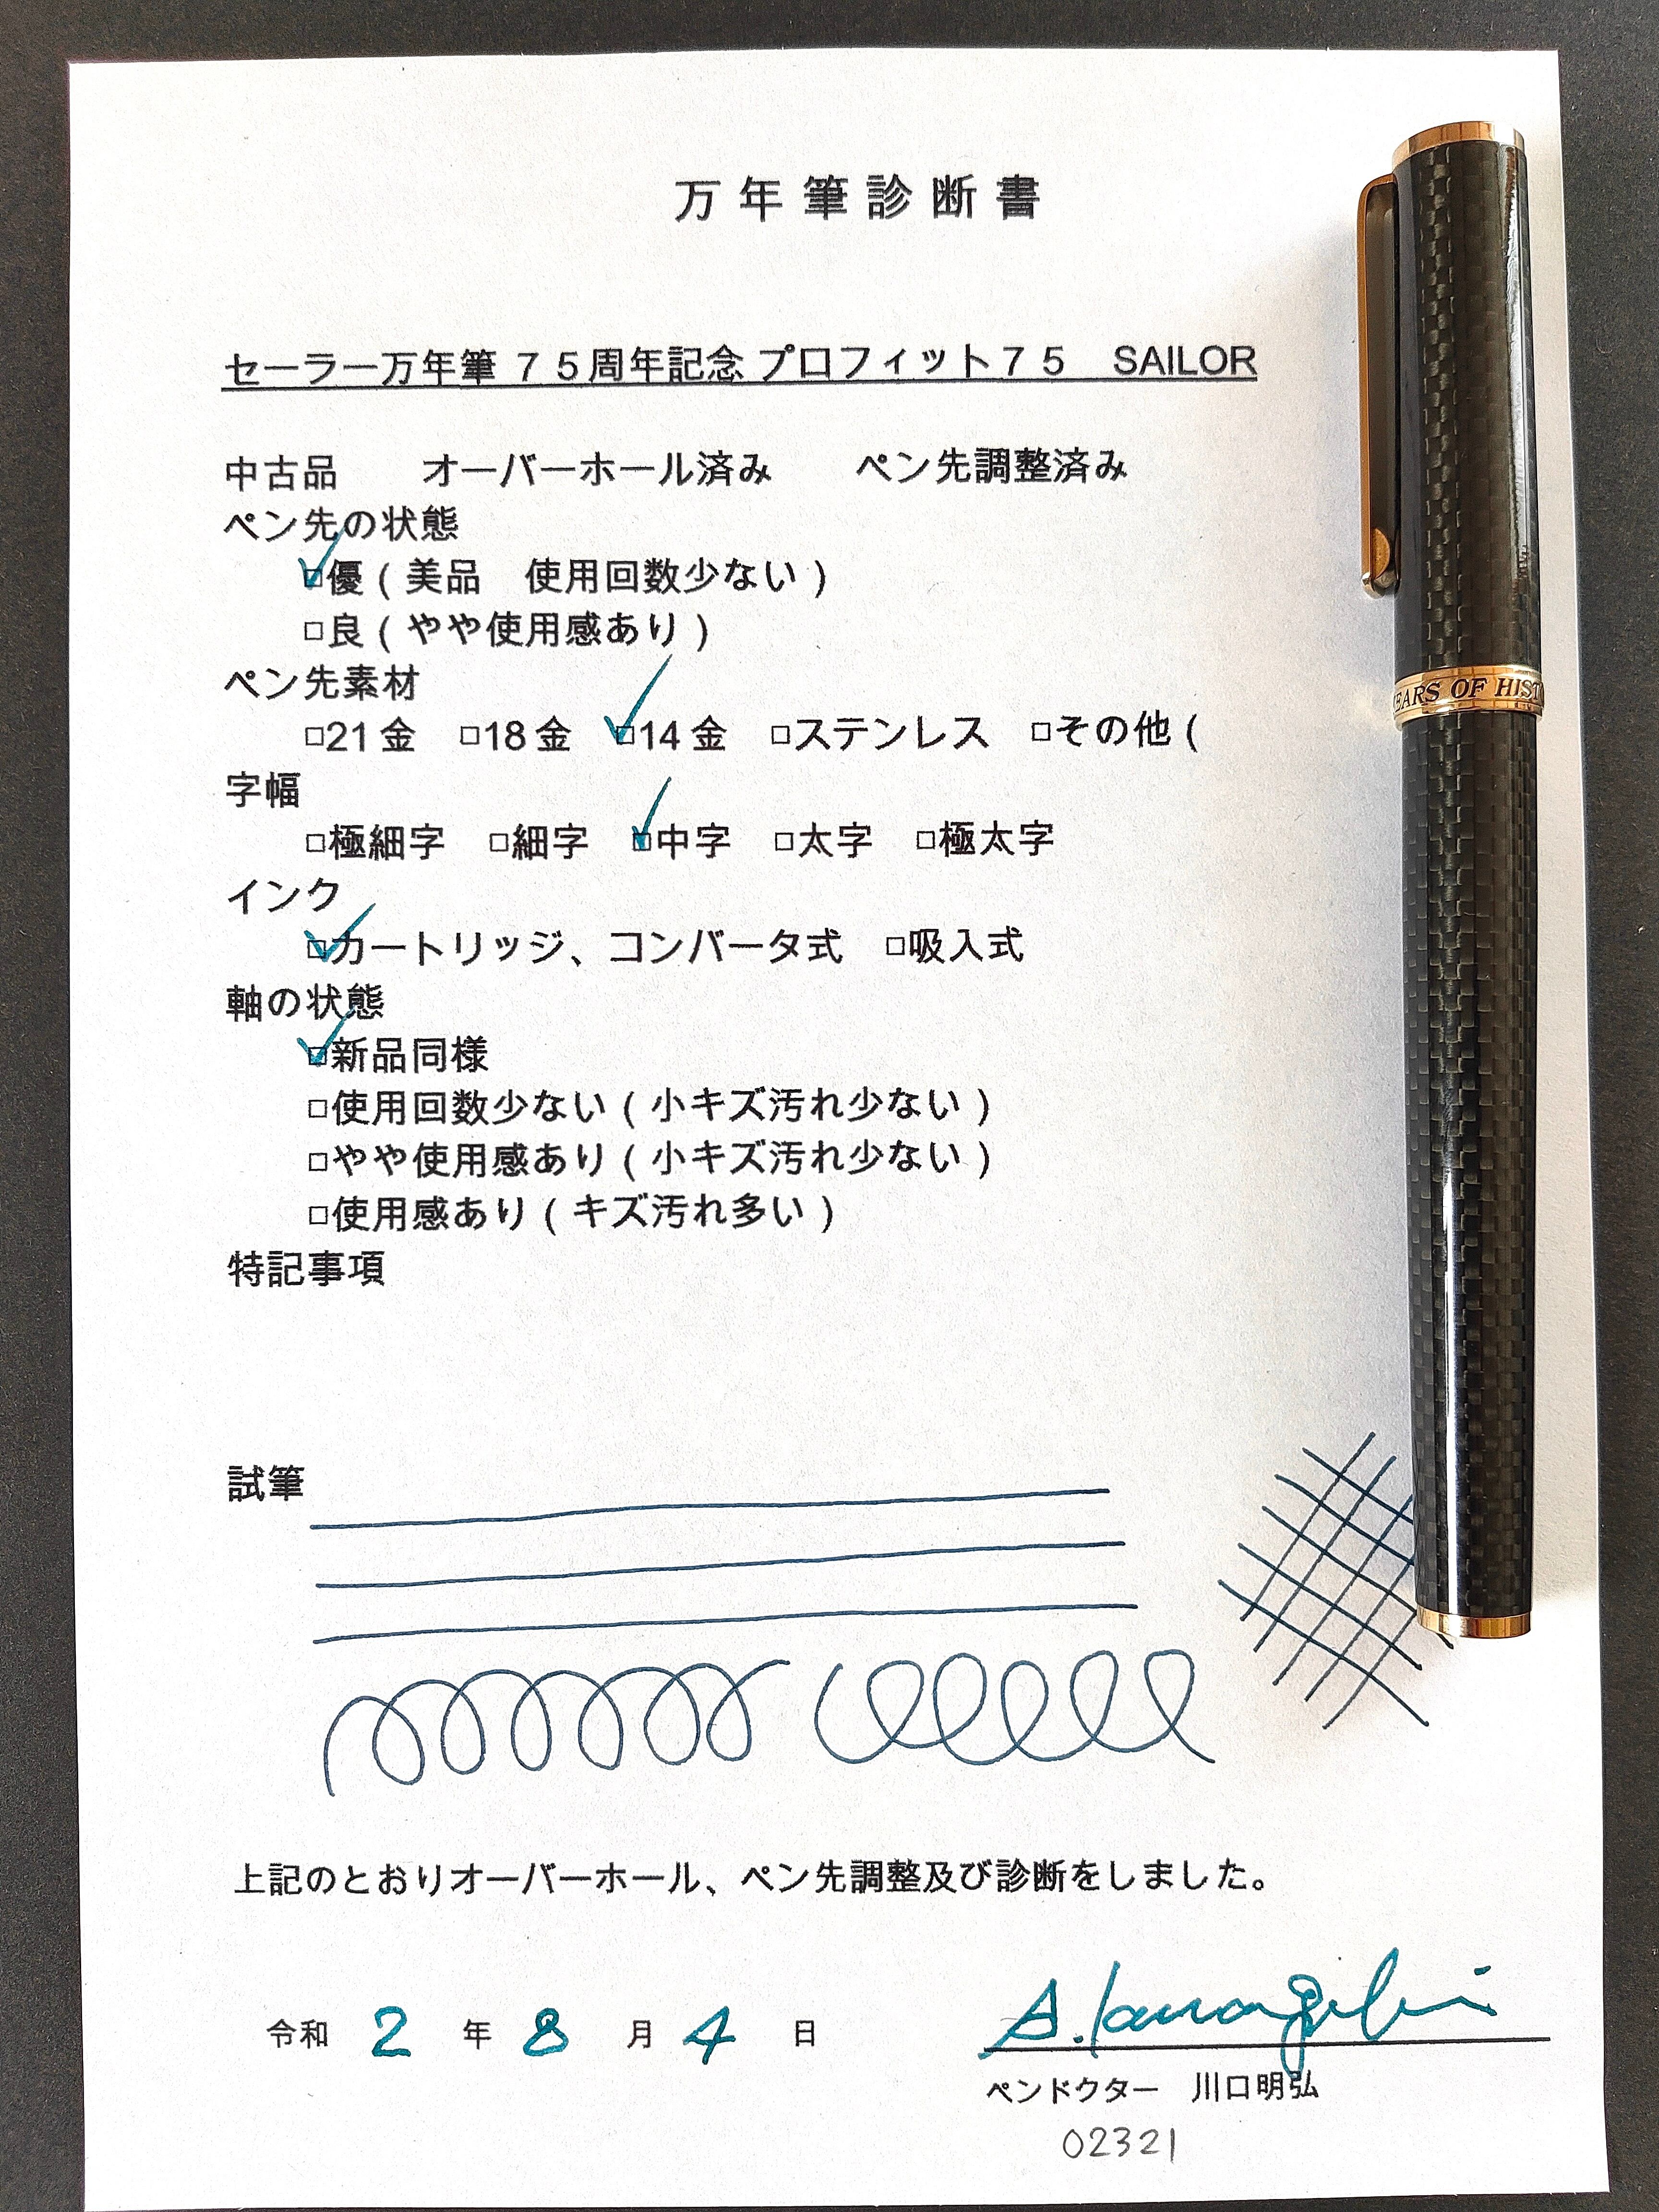 万年筆診断書
セーラー万年筆 75周年記念 プロフィット75 SAILOR
中古品 オーバーホール済み ペン先調整済み
ペン先の状態
☑優(美品 使用回数少ない)
□良(やや使用感あり)
ペン先素材
□21金 □18金 ☑14金 □ステンレス □その他(
字幅
□極細字 □細字 ☑中字 □太字 □極太字
インク
☑カートリッジ、コンバータ式 □吸入式
軸の状態
☑新品同様
□使用回数少ない(小キズ汚れ少ない)
□やや使用感あり(小キズ汚れ少ない)
□使用感あり(キズ汚れ多い)
特記事項
試筆
上記のとおりオーバーホール、ペン先調整及び診断をしました。
令和 2 年 8 月 4 日
ペンドクター 川口明弘
02321
OF